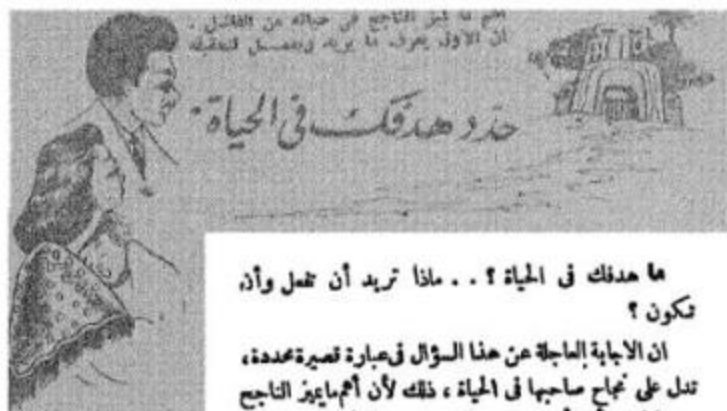 أهم ما يميز الناجح في حياته عن الفاشل ،
ان الاول يعرف ما يريد ويعمل لتحقيقه
حدد هدفك في الحياة .
ما هدفك في الحياة ؟ . . ماذا تريد أن تفعل وأن
تكون ؟
ان الاجابة العاجلة عن هذا السؤال في عبارة قصيرة محددة ،
تدل على نجاح صاحبها في الحياة ، ذلك لأن أهم ما يميز الناجح